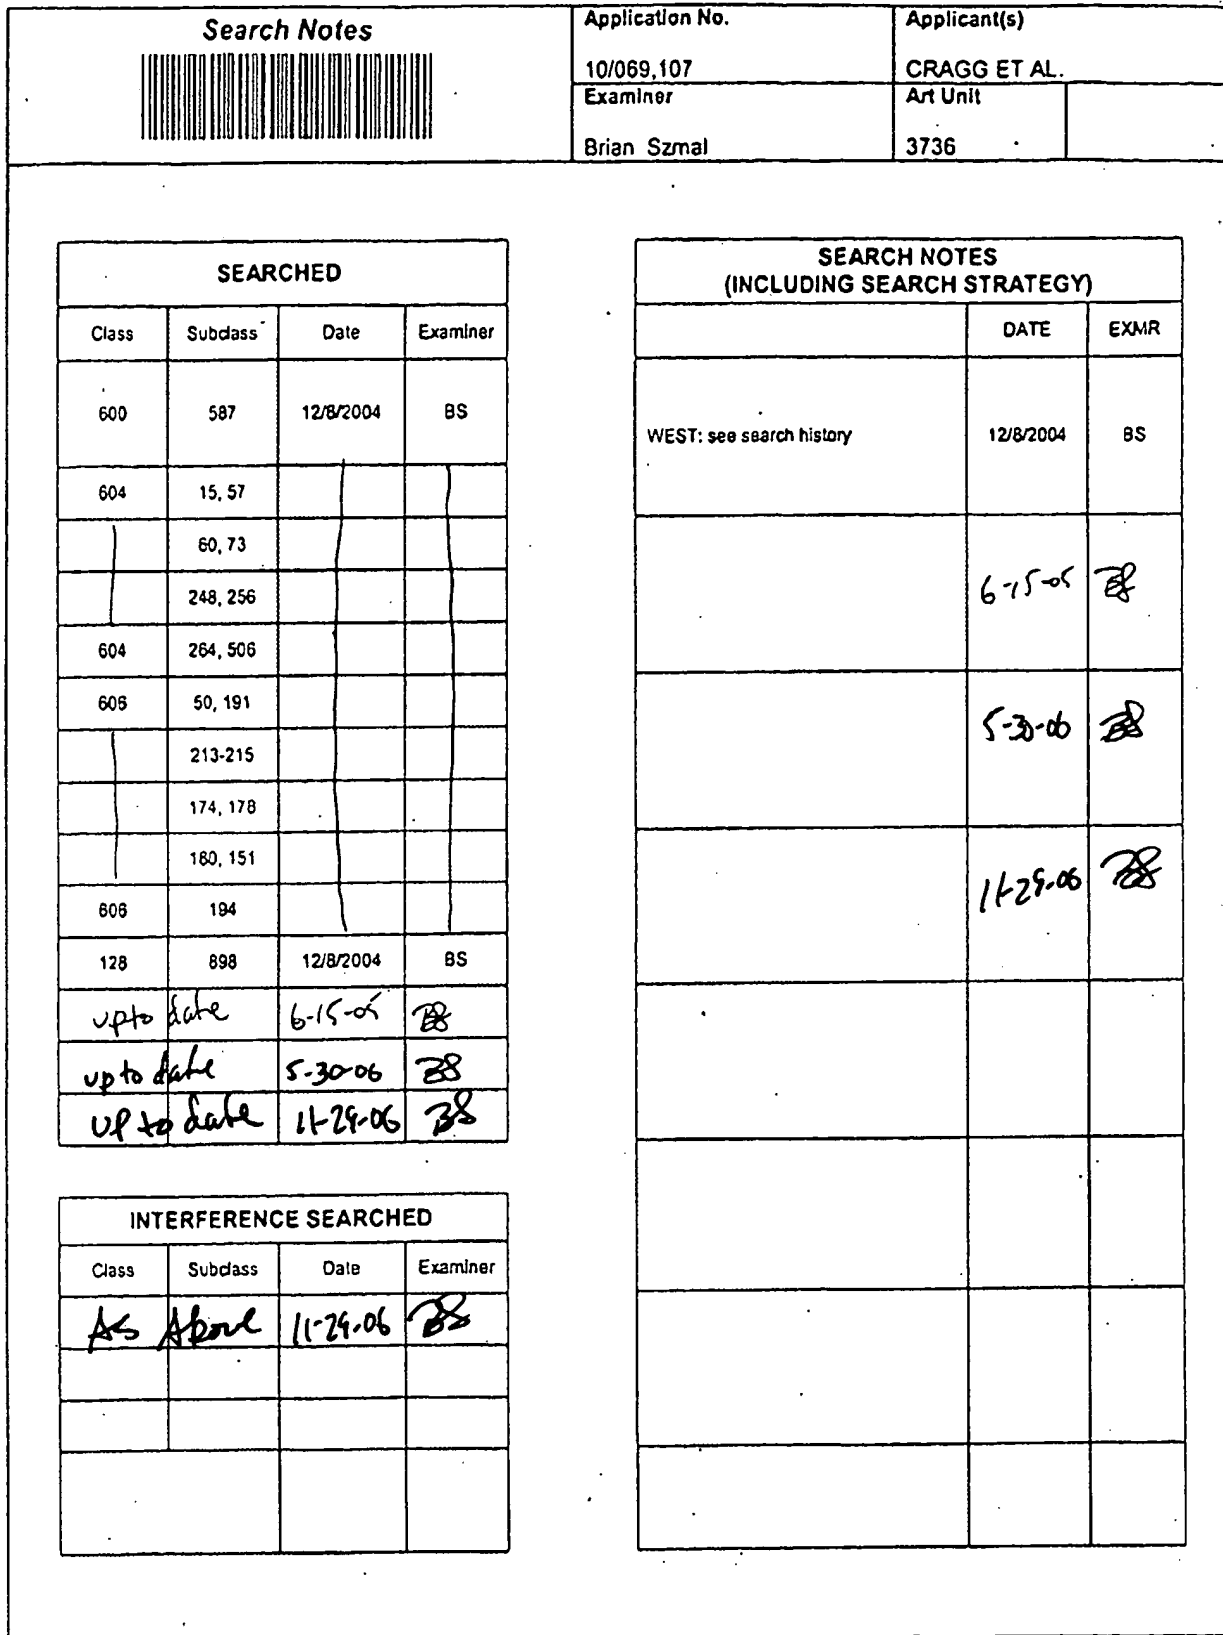 Search Notes
Application No.
10/069,107
Applicant(s)
CRAGG ET AL.
Examiner
Brian Szmal
Art Unit
3736
SEARCHED
Class Subclass Date Examiner
600 587 12/8/2004 BS
604 15, 57
60, 73
248, 256
604 264, 506
606 50, 191
213-215
174, 178
180, 151
606 194
128 898 12/8/2004 BS
up to date 6-15-05 BS
up to date 5-30-06 BS
up to date 11-29-06 BS
INTERFERENCE SEARCHED
Class Subclass Date Examiner
As Above 11-29-06 BS
SEARCH NOTES
(INCLUDING SEARCH STRATEGY)
DATE EXMR
WEST: see search history 12/8/2004 BS
6-15-05 BS
5-30-06 BS
11-29-06 BS